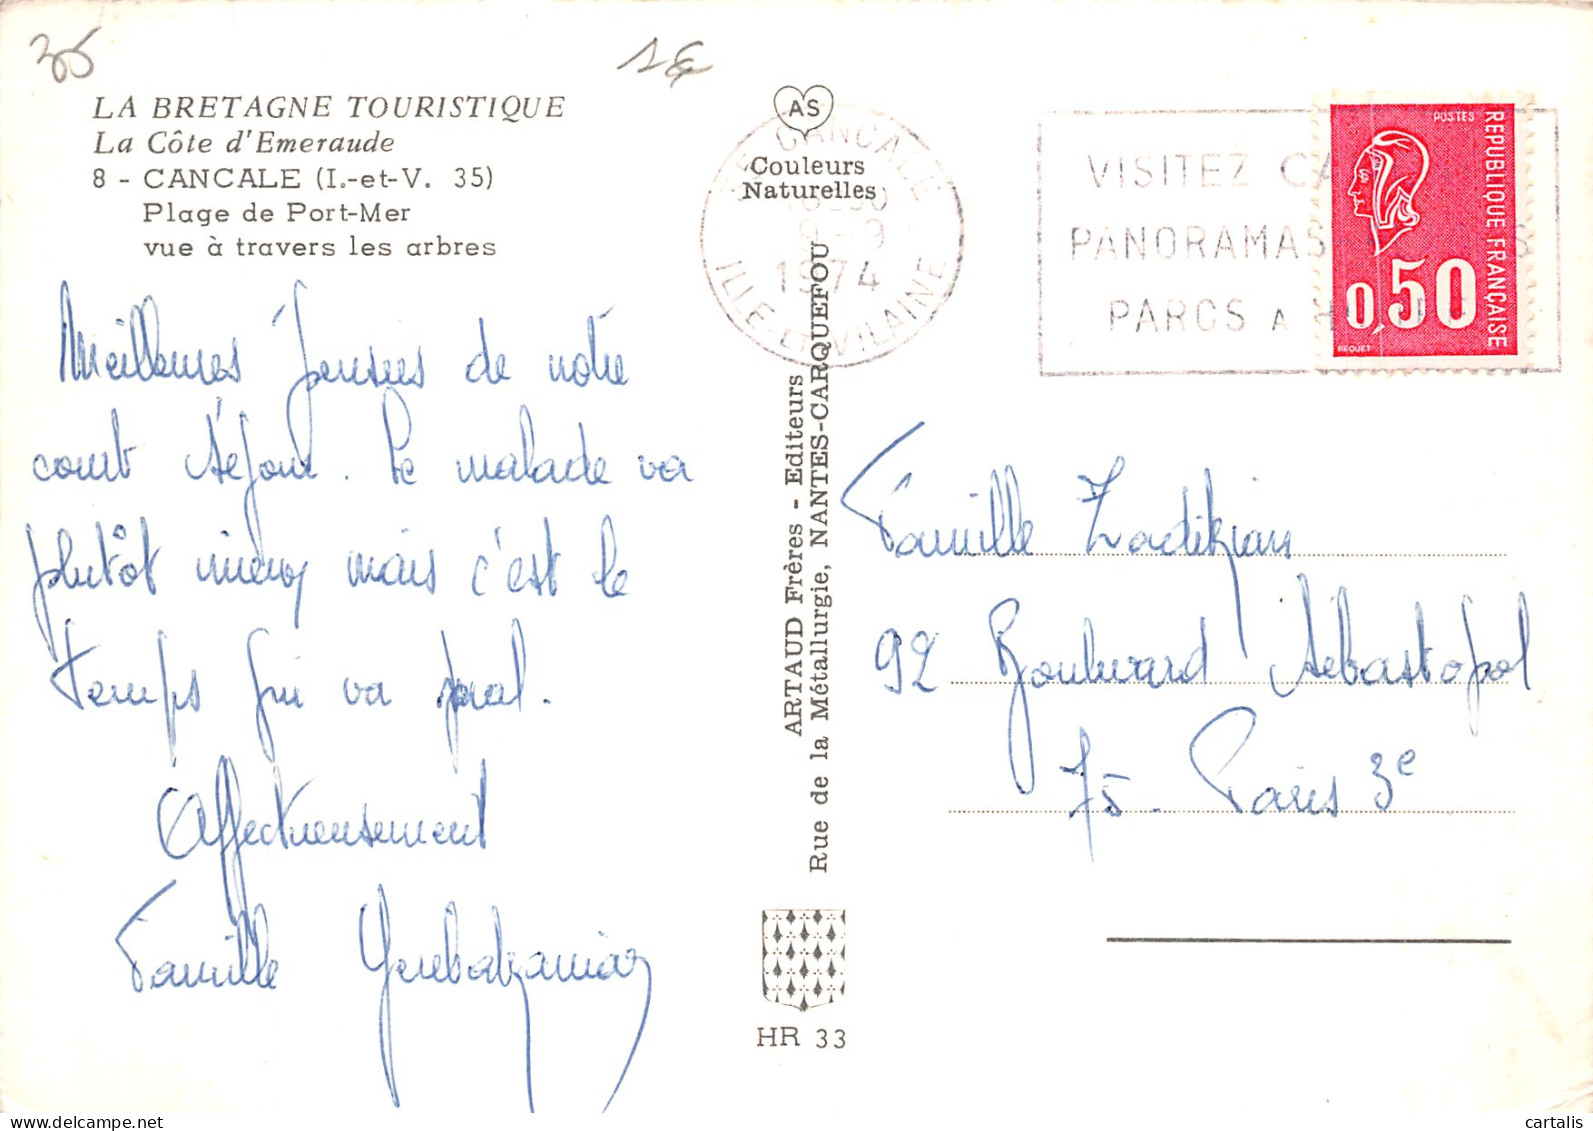 35
LA BRETAGNE TOURISTIQUE
La Côte d'Emeraude
8 - CANCALE (I.-et-V. 35)
Plage de Port-Mer
vue à travers les arbres
Meilleures pensées de notre
court séjour. Le malade va
plutôt mieux mais c'est le
temps qui va mal.
Affectueusement
Famille
AS
Couleurs
Naturelles
35 CANCALE
9-9
1974
ILLE-ET-VILAINE
VISITEZ CA
PANORAMAS S
PARCS A
POSTES
REPUBLIQUE FRANÇAISE
0,50
BEQUET
ARTAUD Frères - Editeurs
Rue de la Métallurgie, NANTES-CARQUEFOU
Famille Zadikian
92 Boulevard Sébastopol
75 - Paris 3e
HR 33
cartalis
delcampe.net